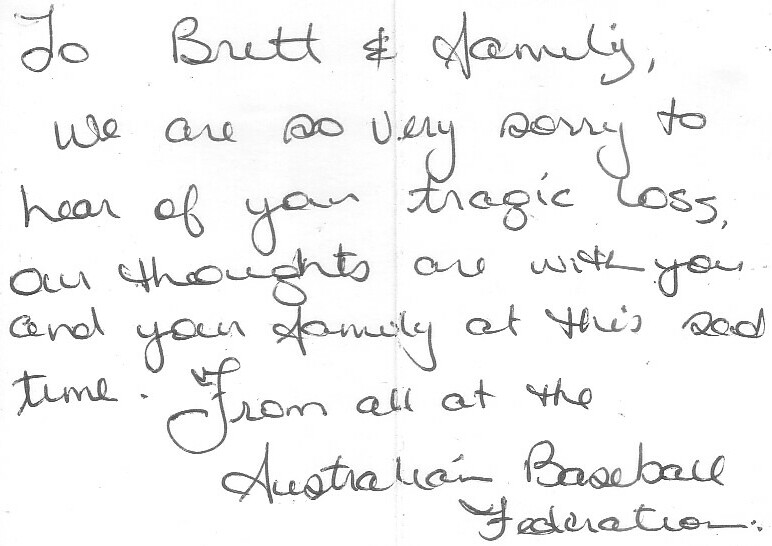 To Brett & family,
We are so very sorry to
hear of your tragic loss,
our thoughts are with you
and your family at this sad
time. From all at the
Australian Baseball
Federation.